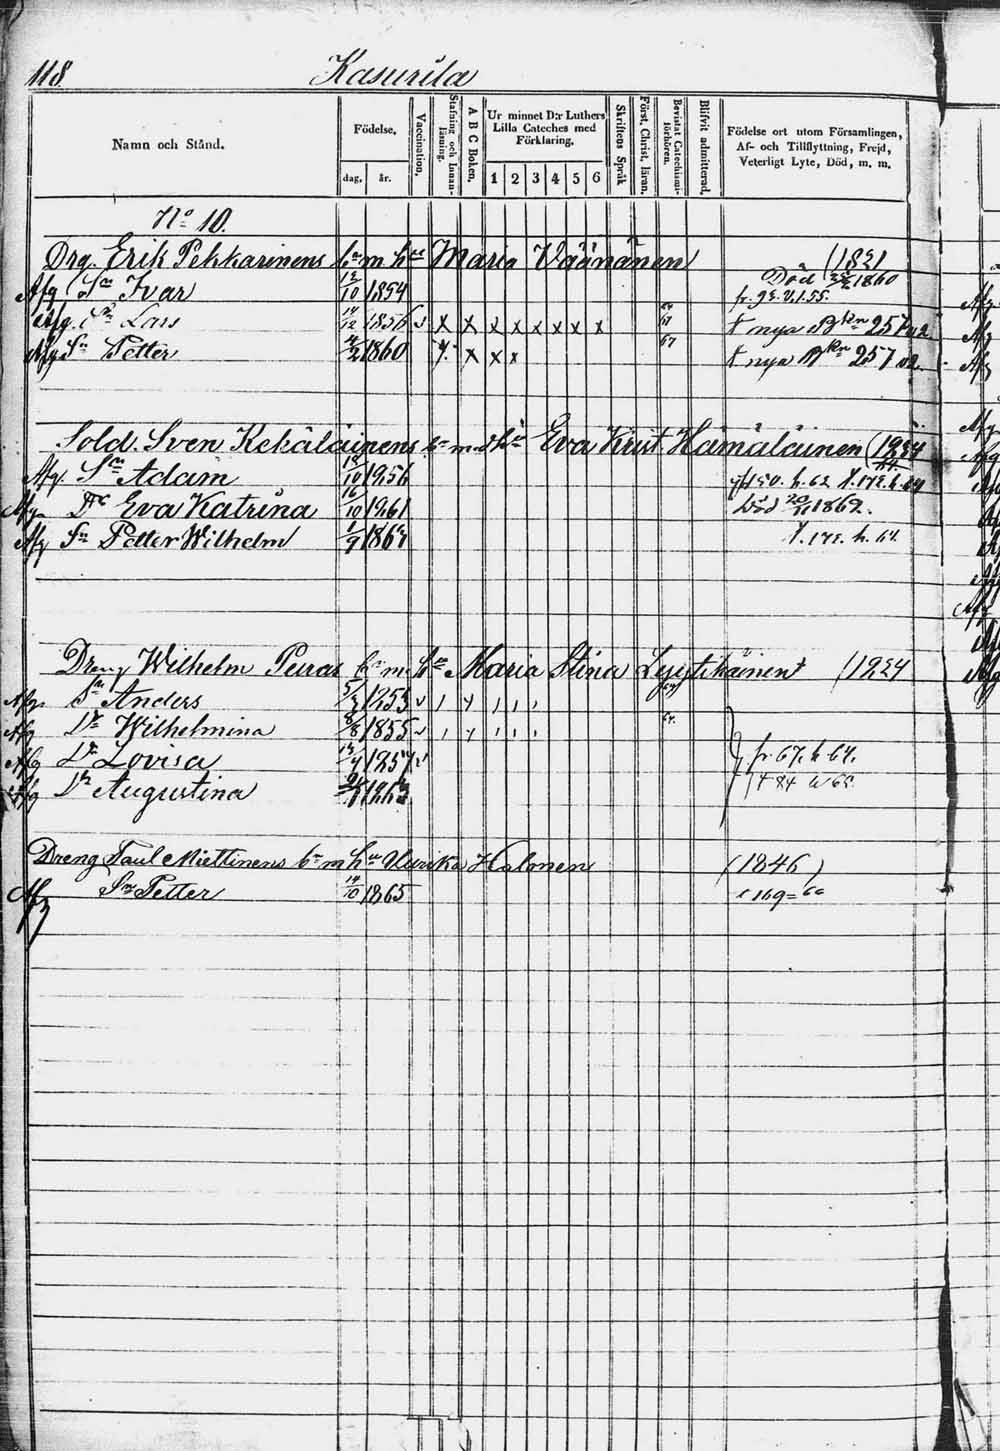 118. Kasurila
Namn och Stånd.
Födelse.
dag. år.
Vaccination.
Stafning och Innanläsning.
A B C Boken.
Ur minnet D:r Luthers
Lilla Cateches med
Förklaring.
1 2 3 4 5 6
Skriftens Språk
Först. Christ. läran.
Bevistat Catechismiförhören.
Blifvit admitterad.
Födelse ort utom Församlingen,
Af- och Tillflyttning, Frejd,
Veterligt Lyte, Död, m. m.
No 10.
Drg. Erik Pekkarinens bn m hu Maria Väänänen (1831
Afg Sn Ivar 12/10 1854 Död 1860
Afg. Sn Lars 14/12 1856 v x x x x x x x x 67 t nya Bkn 257
Afg Sn Petter 1860 x x x 67 t nya Bkn 257
Sold. Sven Kekäläinens bn m d hu Eva Krist. Hämäläinen (1834
Afg. Sn Adam 10 1856
Afg Dr Eva Katrina 16/10 1861 Död 1862.
Afg Sn Petter Wilhelm 1/9 186 h. 64
Dreng Wilhelm Peuras bn m. hu Maria Stina Lyytikäinen (1834
Afg. Sn Anders 1853 v
Afg Dr Wilhelmina 8/8 1855 v 64.
Afg Dr Lovisa 1857 v fr. 67. h 64.
Afg Dr Augustina 186
Dreng Paul Miettinens bn m hu Ulrika Halonen (1846)
Afg Sn Petter 14/10 1865 169